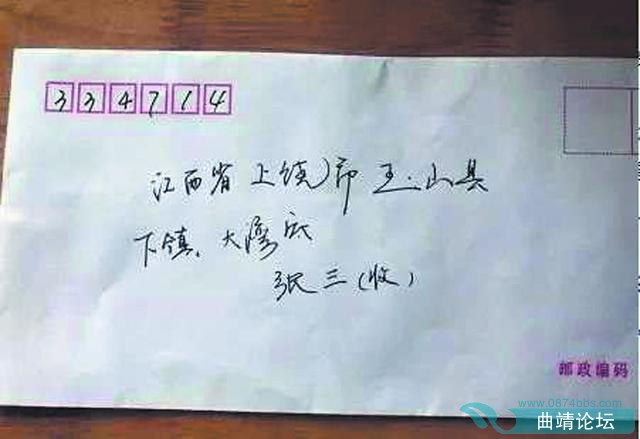 334714
江西省上饶市玉山县
下镇、大湾底
张三(收)
邮政编码
www.0874bbs.com
曲靖论坛